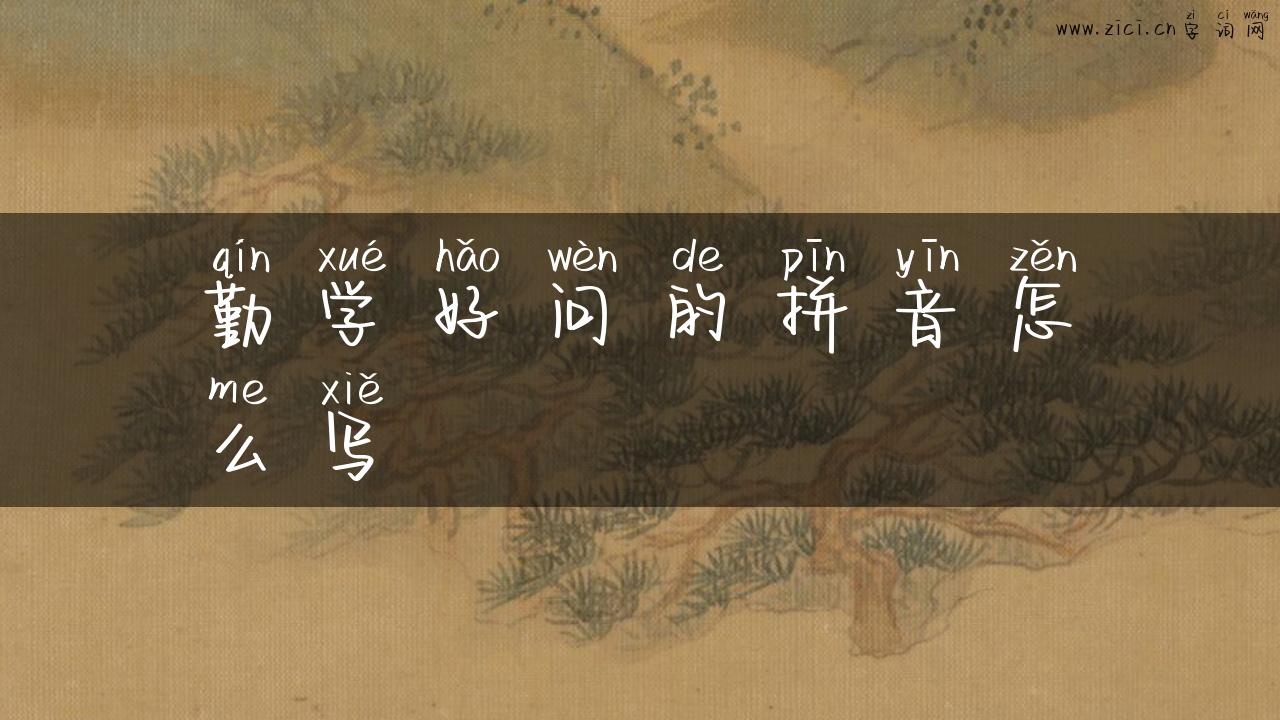 zì cí wǎng
www.zici.cn 字词网
qín xué hǎo wèn de pīn yīn zěn
勤学好问的拼音怎
me xiě
么写